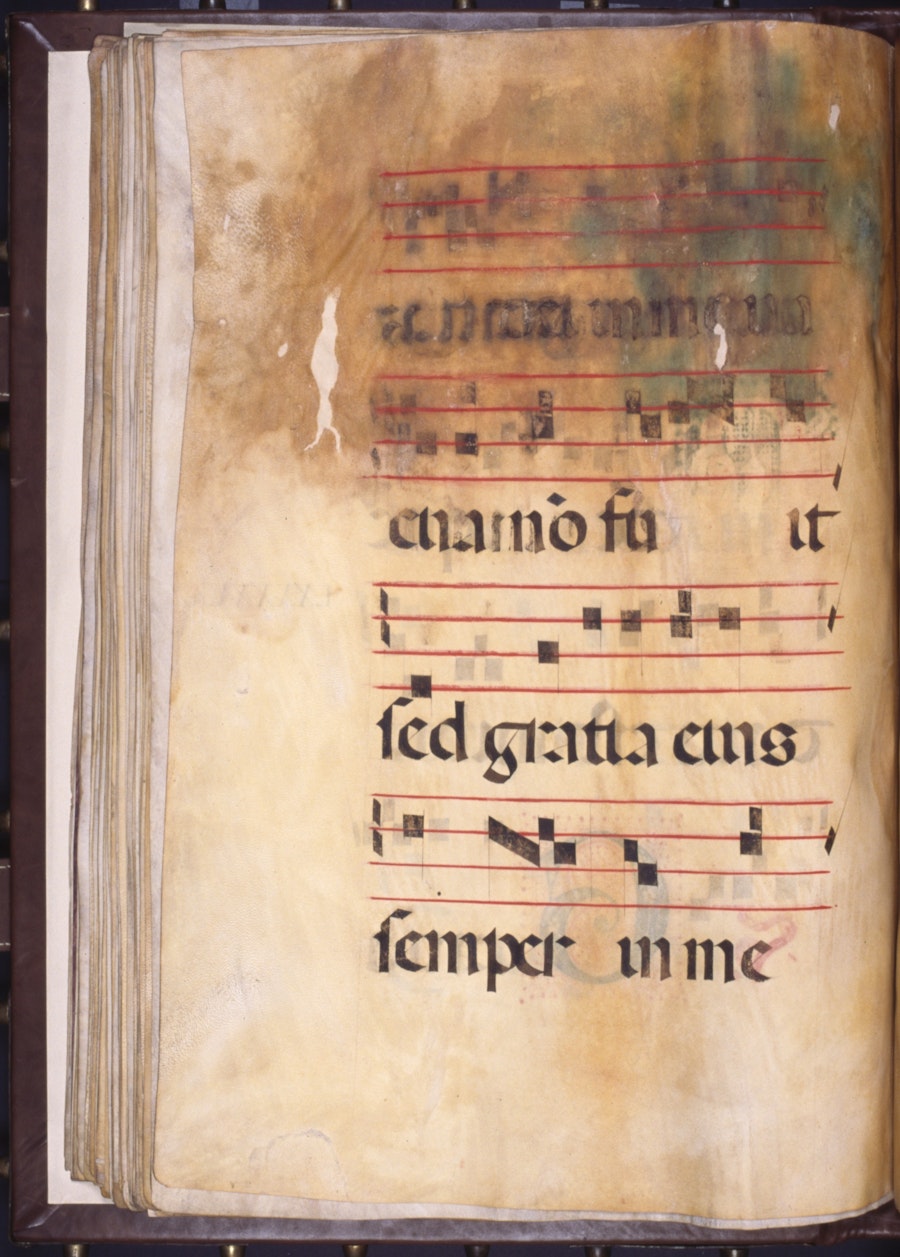 cua nō fu it
sed gratia eius
semper in me